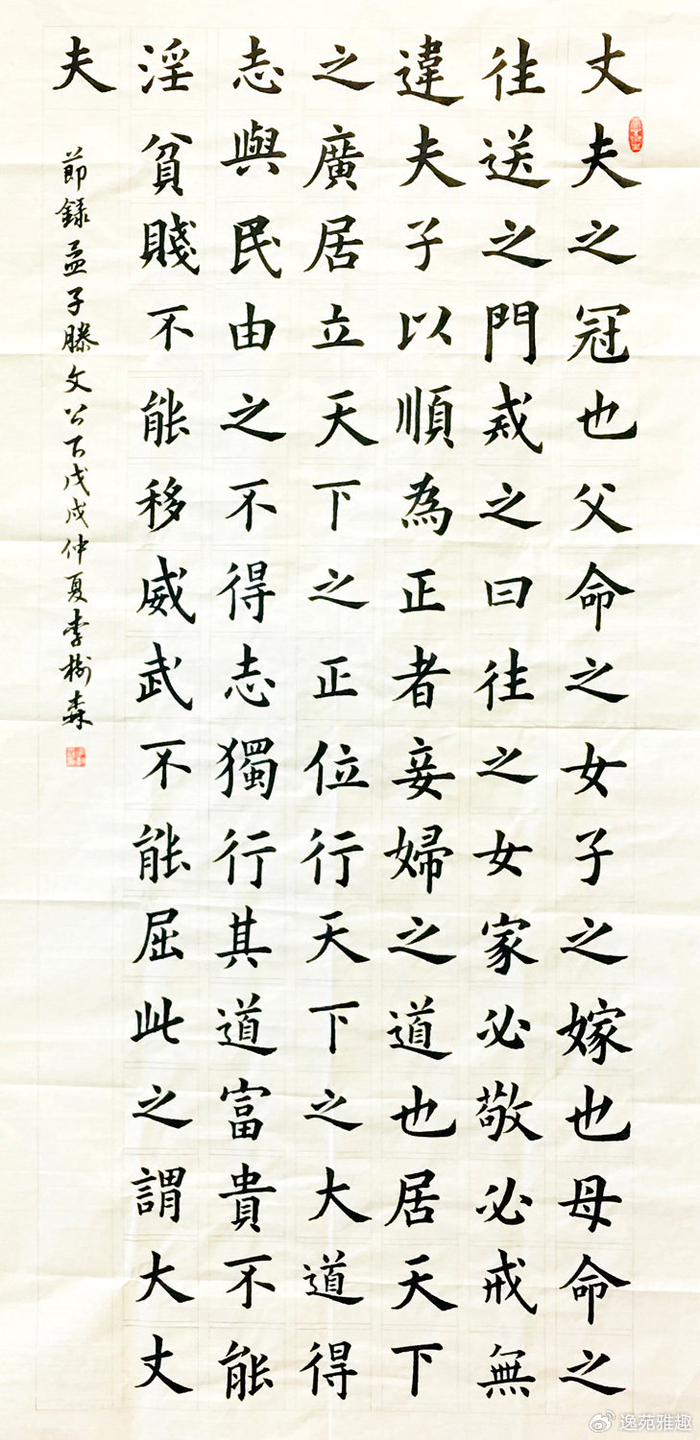 丈夫之冠也父命之女子之嫁也母命之
往送之門戒之曰往之女家必敬必戒無
違夫子以順為正者妾婦之道也居天下
之廣居立天下之正位行天下之大道得
志與民由之不得志獨行其道富貴不能
淫貧賤不能移威武不能屈此之謂大丈
夫
節錄孟子滕文公下戊戌仲夏李樹森
逸苑雅趣